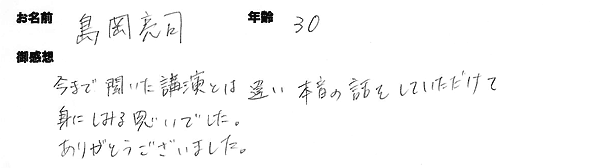 お名前 島岡亮司 年齢 30
御感想
今まで聞いた講演とは違い本音の話をしていただけて
身にしみる思いでした。
ありがとうございました。